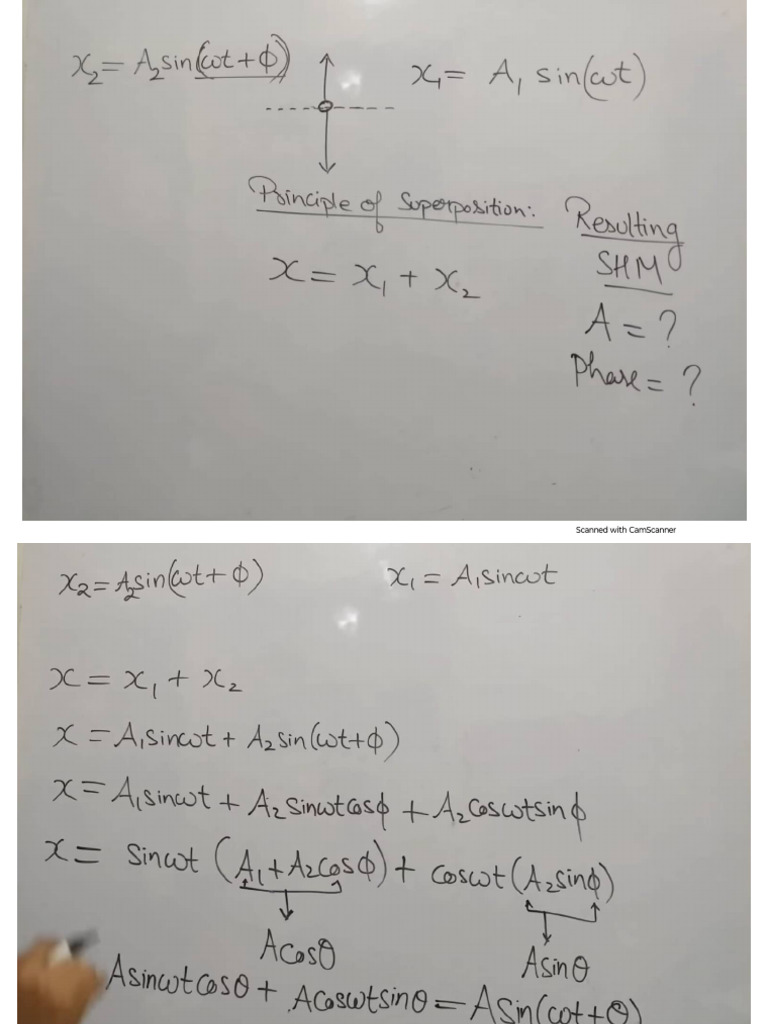 x₂ = A₂sin(ωt + ϕ)
x₁ = A₁ sin(ωt)
Principle of Superposition:
Resulting
SHM
x = x₁ + x₂
A = ?
Phase = ?
Scanned with CamScanner
x₂ = A₂sin(ωt + ϕ)
x₁ = A₁sinωt
x = x₁ + x₂
x = A₁sinωt + A₂sin(ωt+ϕ)
x = A₁sinωt + A₂sinωtcosϕ + A₂cosωtsinϕ
x = sinωt (A₁+A₂cosϕ) + cosωt (A₂sinϕ)
Acosθ
Asinθ
Asinωtcosθ + Acosωtsinθ = Asin(ωt+θ)